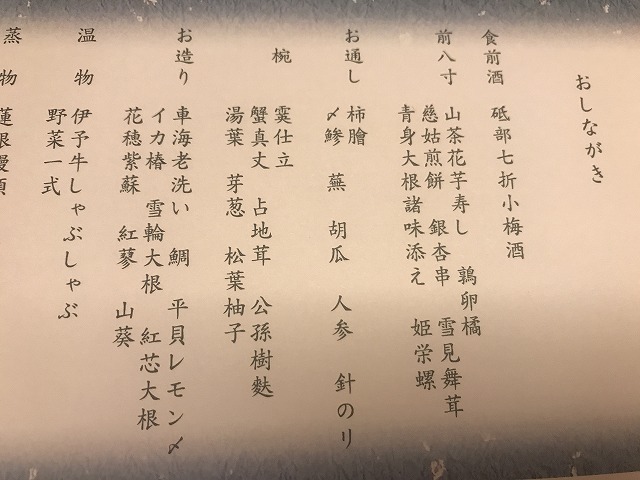 おしながき
食前酒 砥部七折小梅酒
前八寸 山茶花芋寿し 鶉卵橘
慈姑煎餅 銀杏串 雪見舞茸
青身大根諸味添え 姫栄螺
お通し 柿膾
〆鯵 蕪 胡瓜 人参 針のり
椀 霙仕立
蟹真丈 占地茸 公孫樹麩
湯葉 芽葱 松葉柚子
お造り 車海老洗い 鯛 平貝レモン〆
イカ椿 雪輪大根 紅芯大根
花穂紫蘇 紅蓼 山葵
温物 伊予牛しゃぶしゃぶ
野菜一式
蒸物 蓮根饅頭